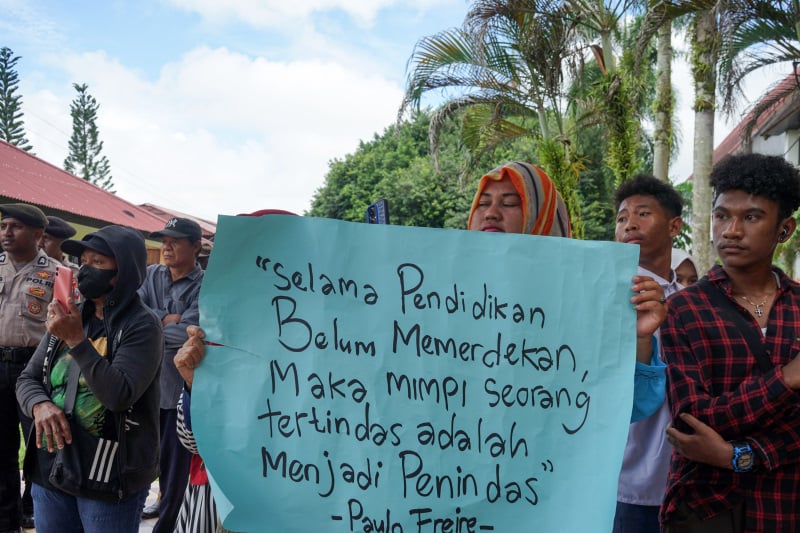 "Selama Pendidikan
Belum Memerdekan,
Maka mimpi seorang
tertindas adalah
Menjadi Penindas"
-Paulo Freire-
POLRI